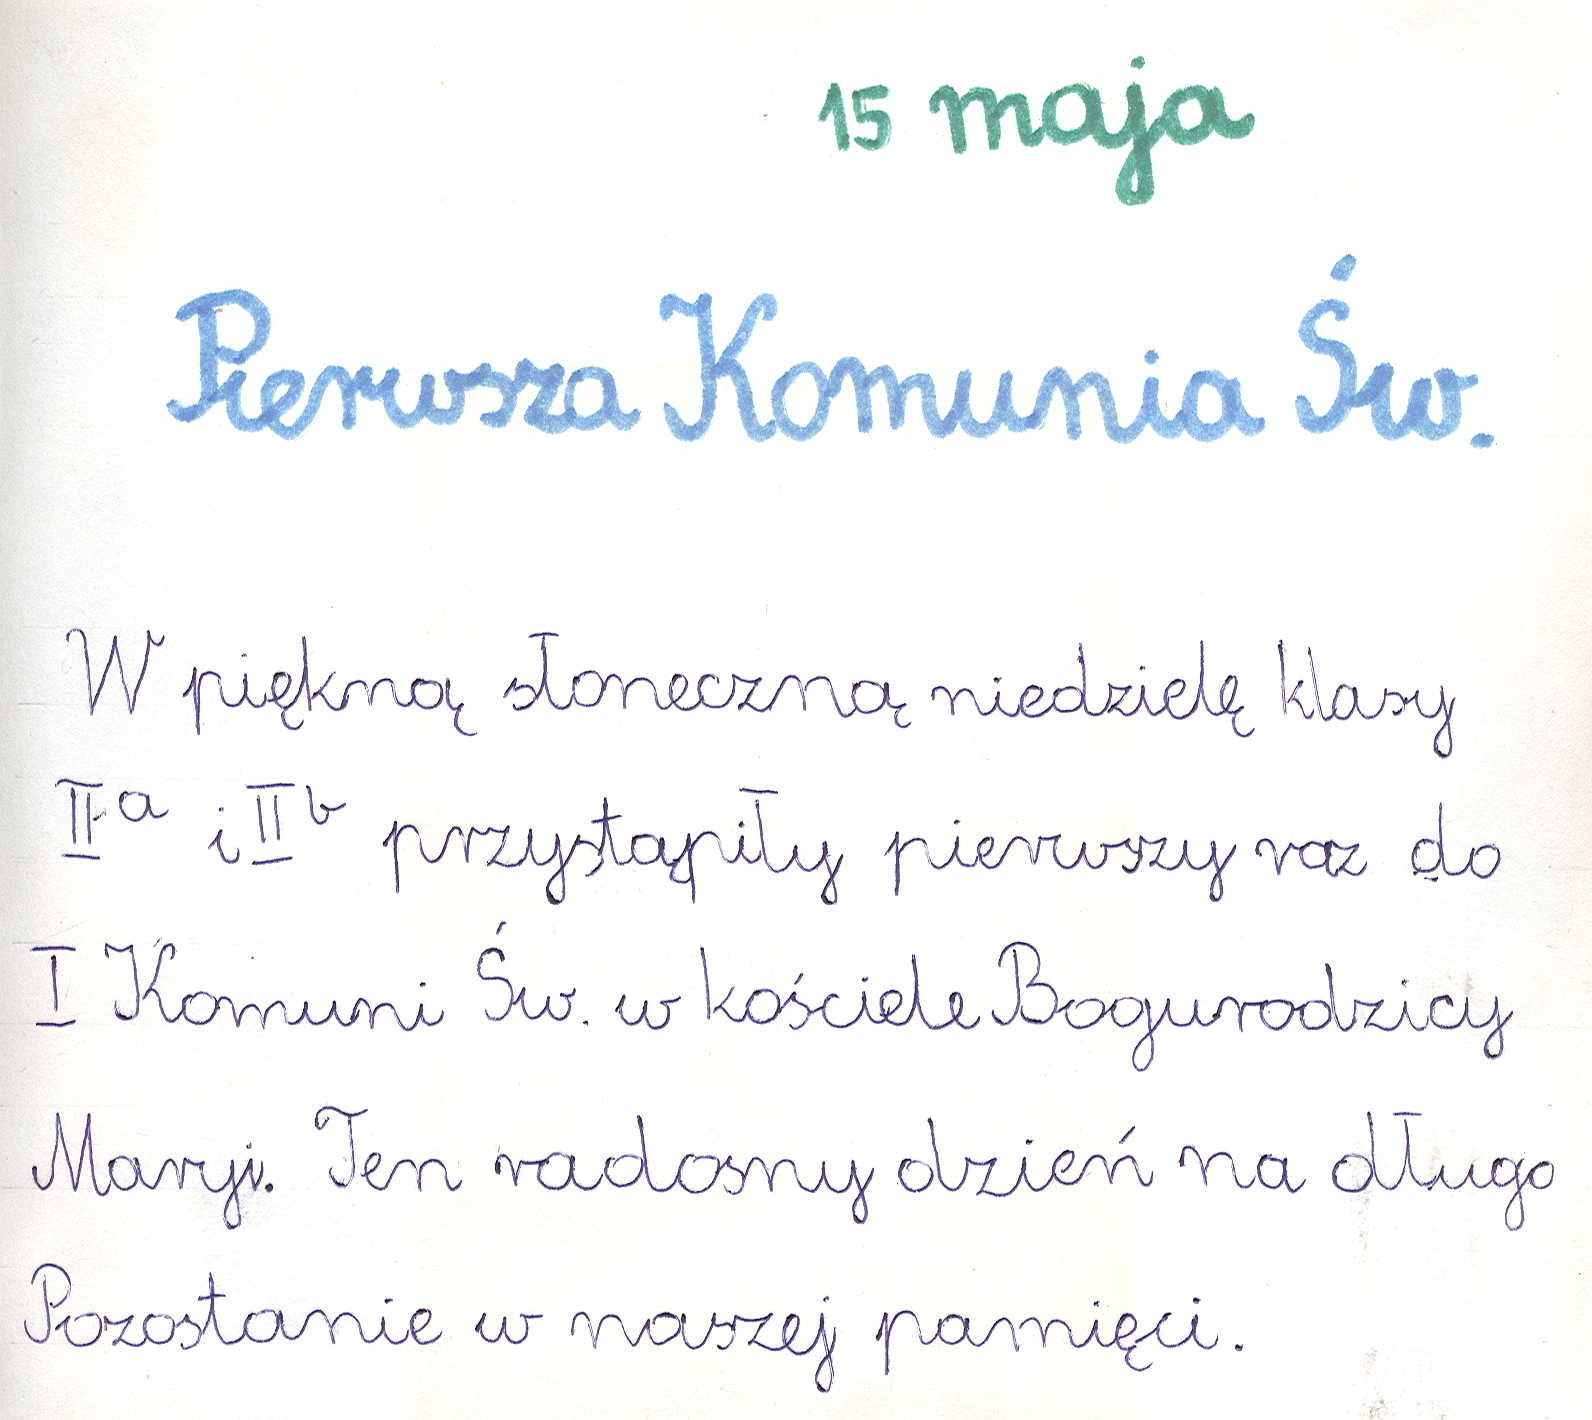 15 maja
Pierwsza Komunia Św.
W piękną słoneczną niedzielę klasy
IIa i IIb przystąpiły pierwszy raz do
I Komuni Św. w kościele Bogurodzicy
Maryi. Ten radosny dzień na długo
Pozostanie w naszej pamięci.